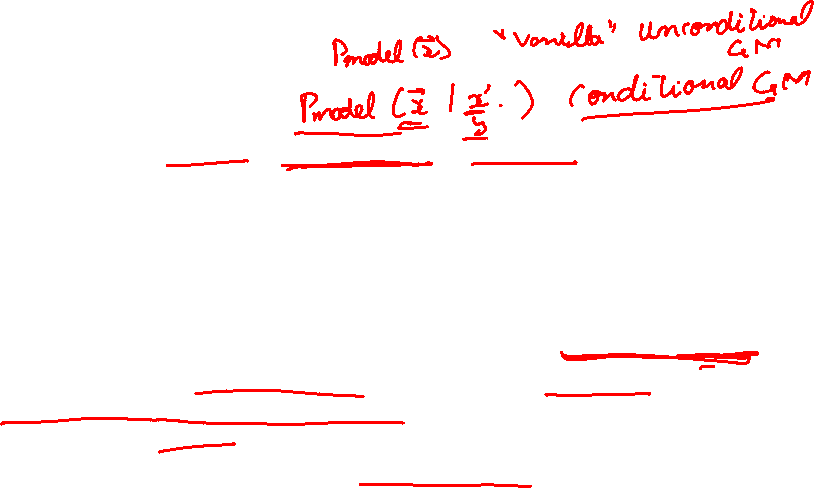 Pmodel (x⃗) "Vanilla" Unconditional
GM
Pmodel (x⃗ | x'. ) Conditional GM
y